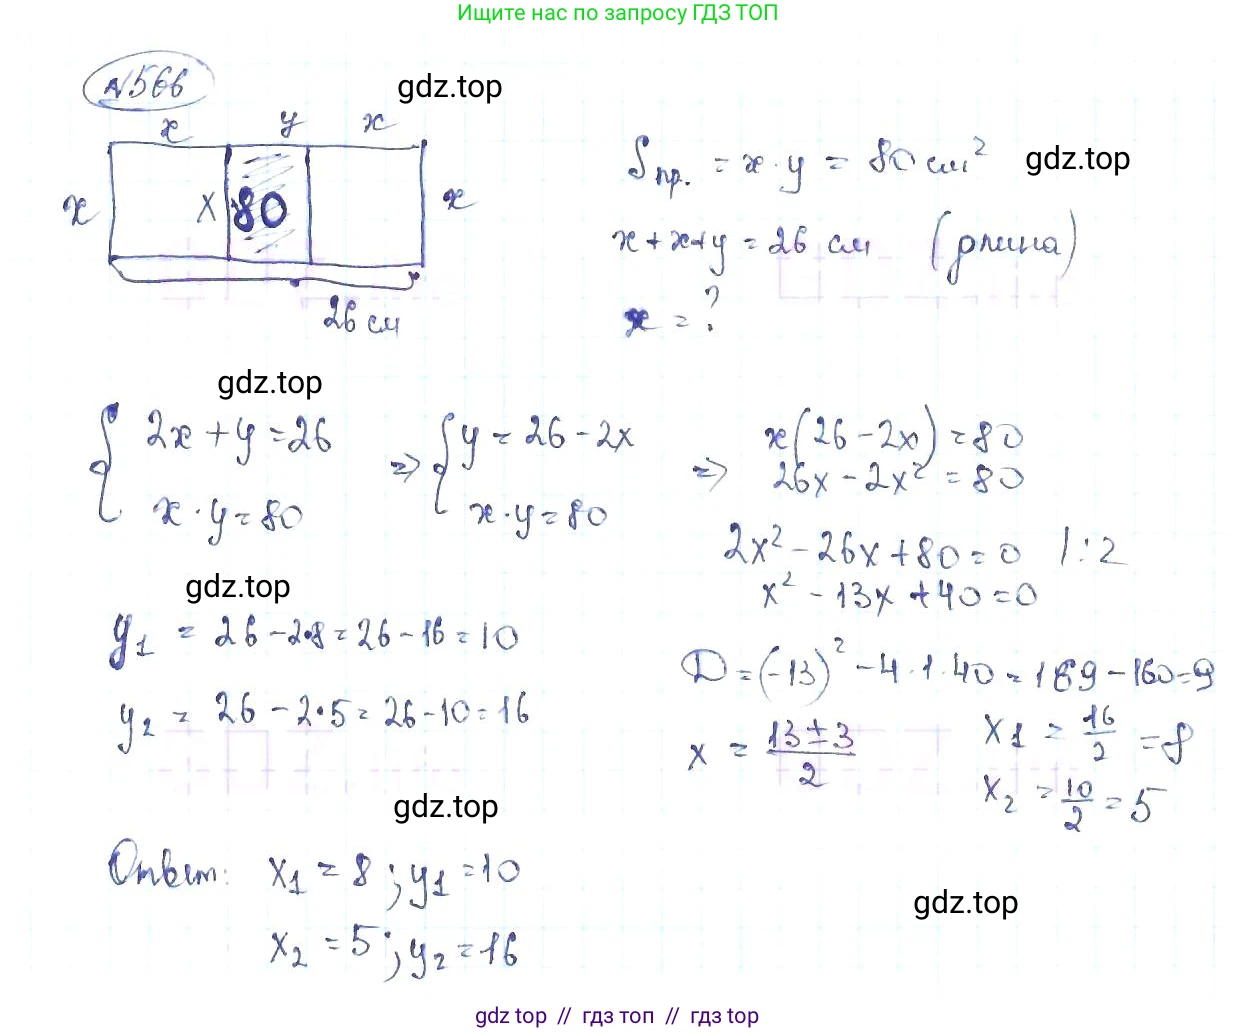 Ищите нас по запросу ГДЗ ТОП
№566
gdz.top
x y x
x x 80 x
26 см
Sпр. = x · y = 80 см²
gdz.top
x + x + y = 26 см (длина)
x = ?
gdz.top
{ 2x + y = 26
x · y = 80
=> { y = 26 - 2x
x · y = 80
=> x(26 - 2x) = 80
26x - 2x² = 80
2x² - 26x + 80 = 0 | : 2
x² - 13x + 40 = 0
gdz.top
y₁ = 26 - 2·8 = 26 - 16 = 10
y₂ = 26 - 2·5 = 26 - 10 = 16
D = (-13)² - 4 · 1 · 40 = 169 - 160 = 9
x = 13 ± 3 / 2
x₁ = 16/2 = 8
x₂ = 10/2 = 5
gdz.top
Ответ: x₁ = 8 ; y₁ = 10
x₂ = 5 ; y₂ = 16
gdz.top
gdz top // гдз топ // gdz top